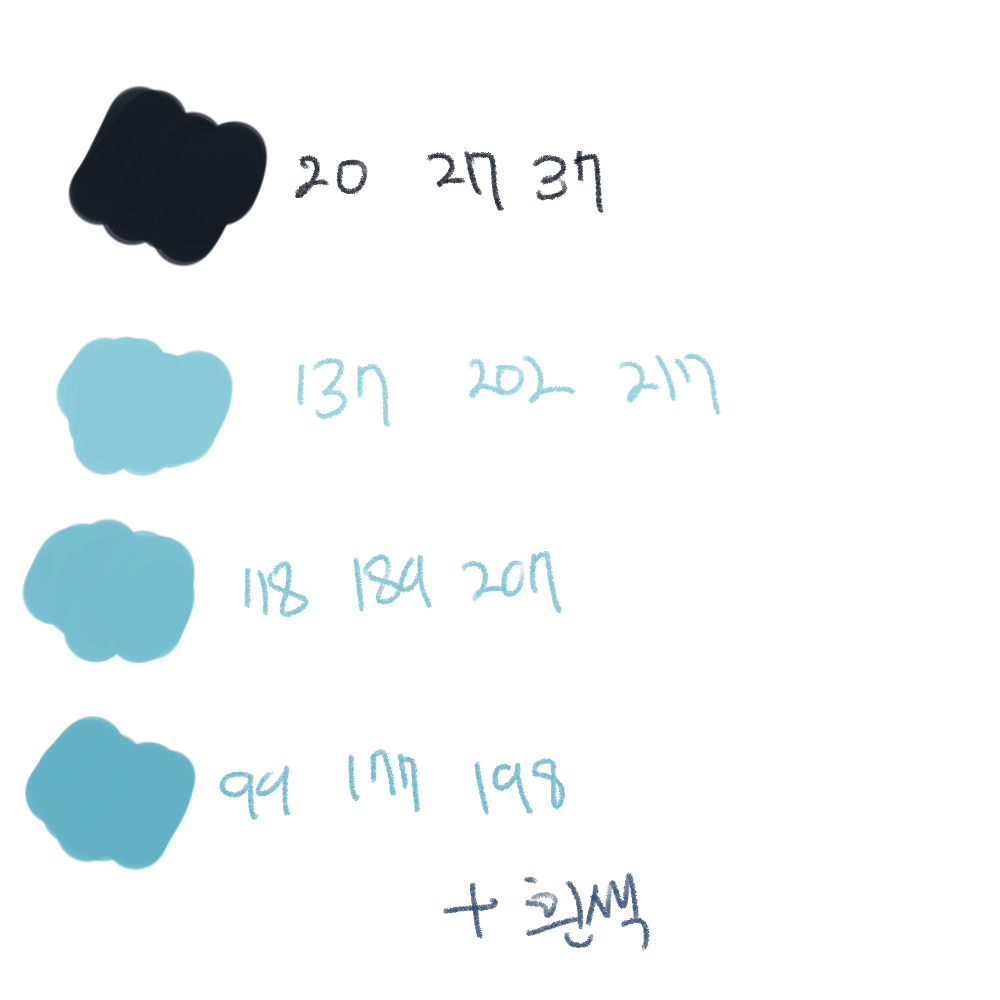 20 27 37
137 202 217
118 189 207
99 177 198
+ 흰색